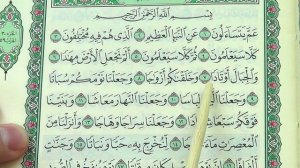 بِسْمِ اللَّهِ الرَّحْمَٰنِ الرَّحِيمِ
عَمَّ يَتَسَاءَلُونَ ١ عَنِ النَّبَإِ الْعَظِيمِ ٢ الَّذِي هُمْ فِيهِ مُخْتَلِفُونَ ٣
كَلَّا سَيَعْلَمُونَ ٤ ثُمَّ كَلَّا سَيَعْلَمُونَ ٥ أَلَمْ نَجْعَلِ الْأَرْضَ مِهَادًا ٦
وَالْجِبَالَ أَوْتَادًا ٧ وَخَلَقْنَاكُمْ أَزْوَاجًا ٨ وَجَعَلْنَا نَوْمَكُمْ سُبَاتًا
٩ وَجَعَلْنَا اللَّيْلَ لِبَاسًا ١٠ وَجَعَلْنَا النَّهَارَ مَعَاشًا ١١ وَبَنَيْنَا
فَوْقَكُمْ سَبْعًا شِدَادًا ١٢ وَجَعَلْنَا سِرَاجًا وَهَّاجًا ١٣ وَأَنْزَلْنَا مِنَ
الْمُعْصِرَاتِ مَاءً ثَجَّاجًا ١٤ لِنُخْرِجَ بِهِ حَبًّا وَنَبَاتًا ١٥